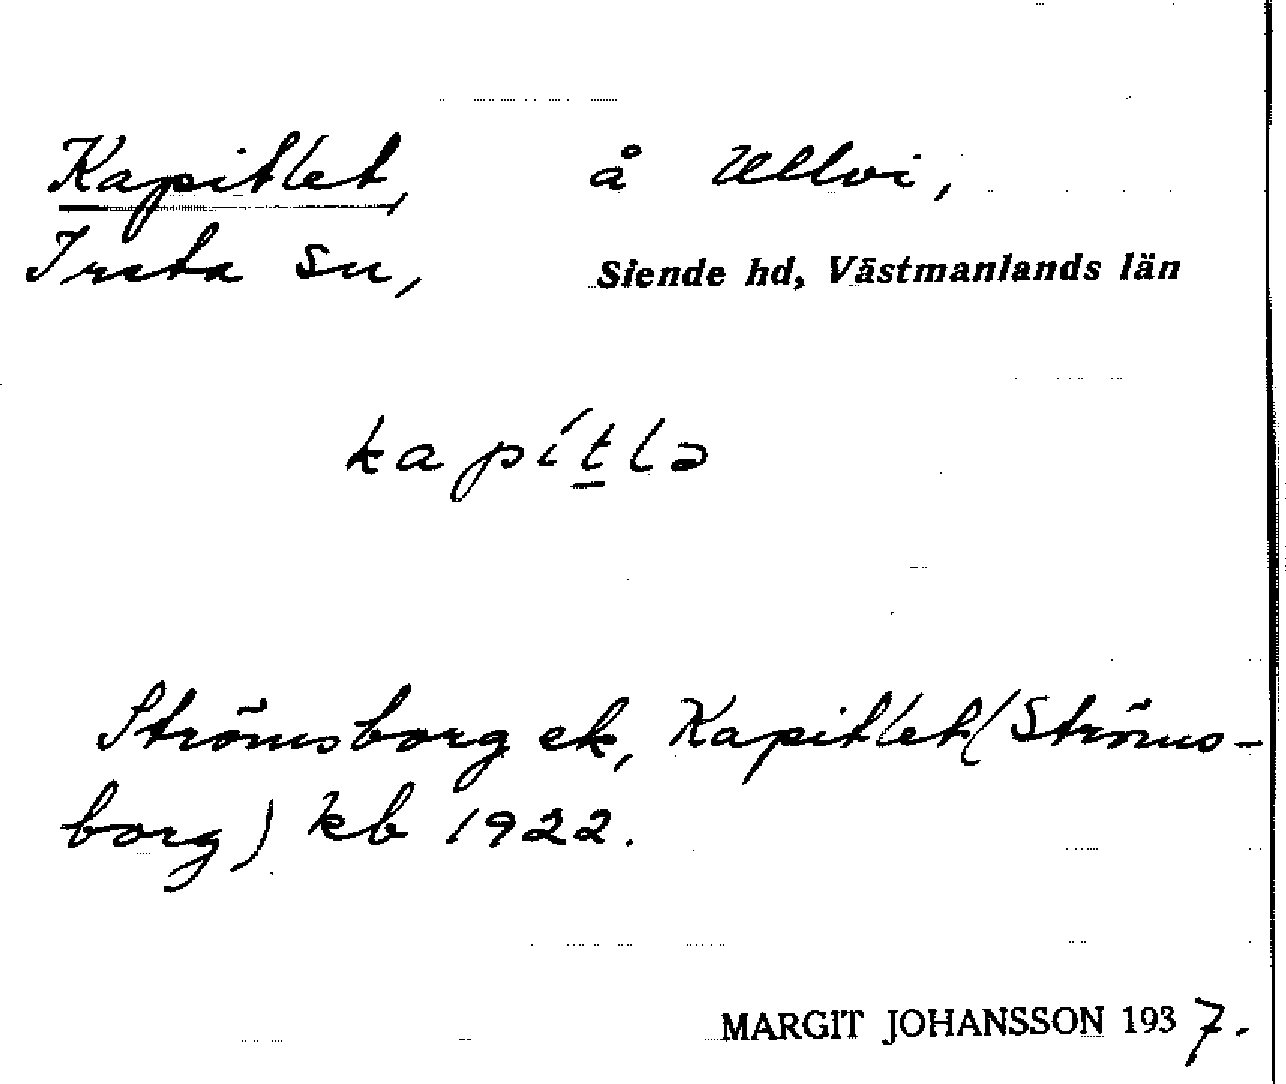 Kapitlet, å Ullvi,
Irsta sn, Siende hd, Västmanlands län
kapít̠lə
Strömsborg ek, Kapitlet (Ströms-
borg) kb 1922.
MARGIT JOHANSSON 1937.